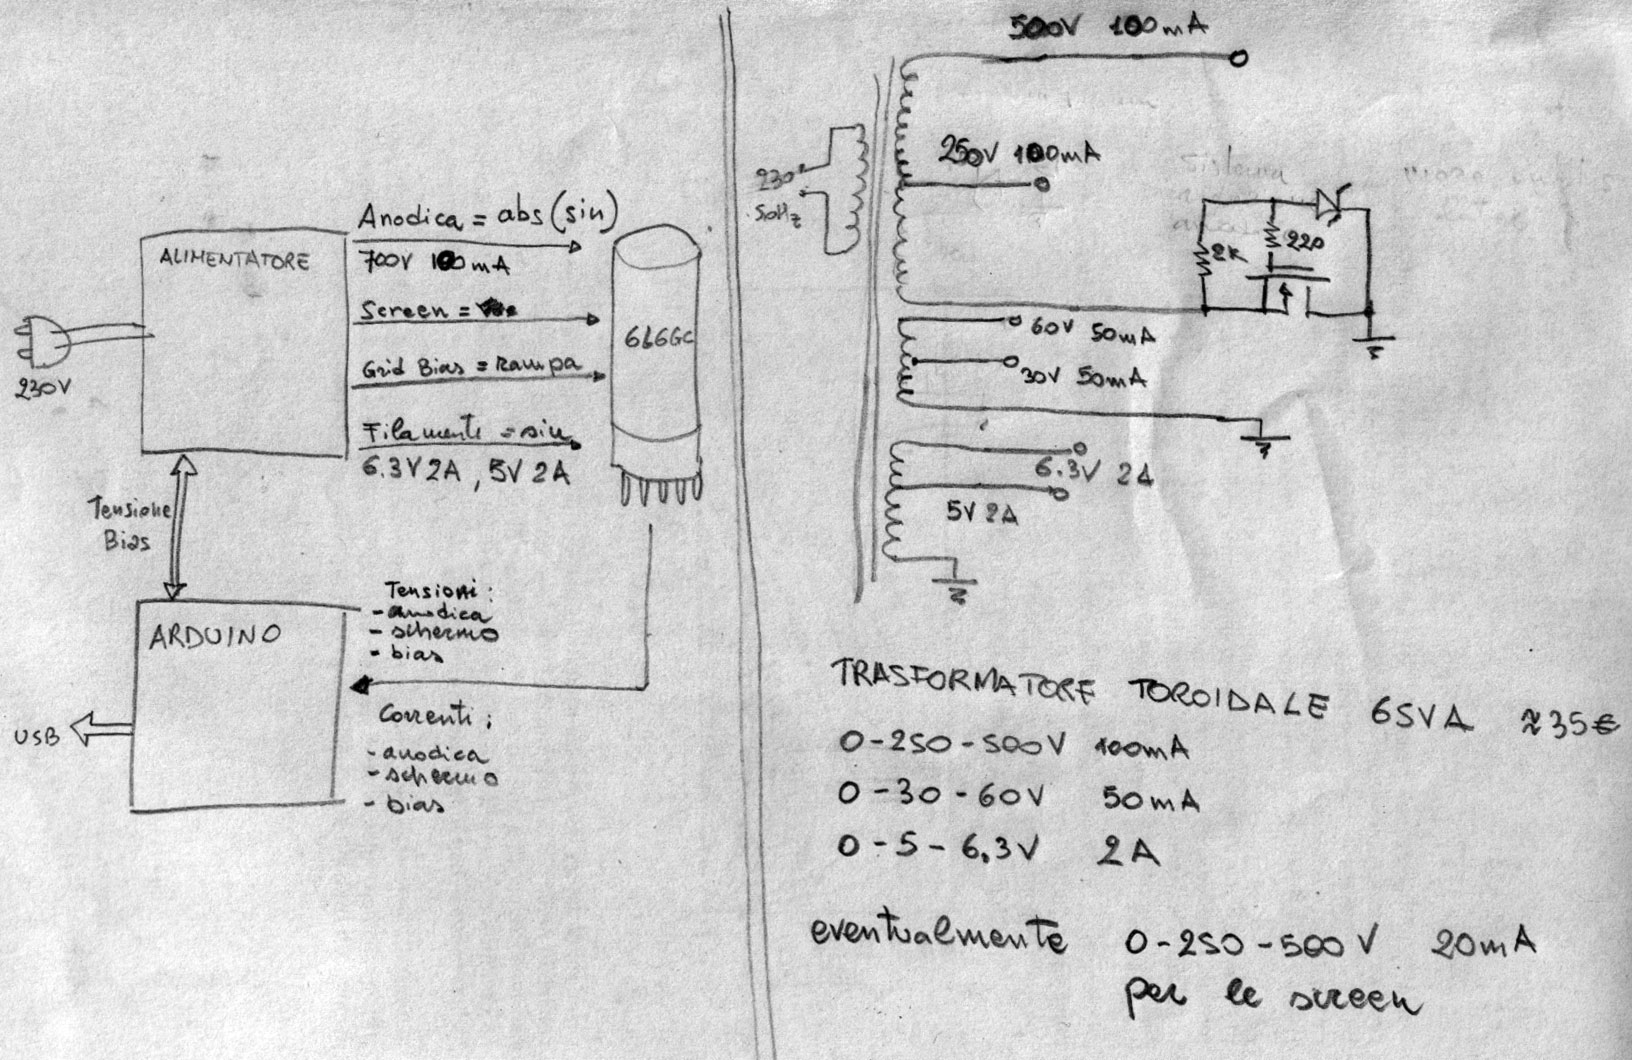 ALIMENTATORE
230V
Anodica = abs(sin)
700V 100mA
Screen =
Grid Bias = rampa
Filamente = sin
6.3V 2A , 5V 2A
6L6GC
Tensione
Bias
ARDUINO
USB
Tensioni :
- anodica
- schermo
- bias
Correnti ;
- anodica
- schermo
- bias
500V 100mA
250V 100mA
230
50Hz
2K
220
60V 50mA
30V 50mA
6.3V 2A
5V 2A
TRASFORMATORE TOROIDALE 65VA ≈35€
0-250-500V 100mA
0-30-60V 50mA
0-5-6.3V 2A
eventualmente 0-250-500V 20mA
per le screen